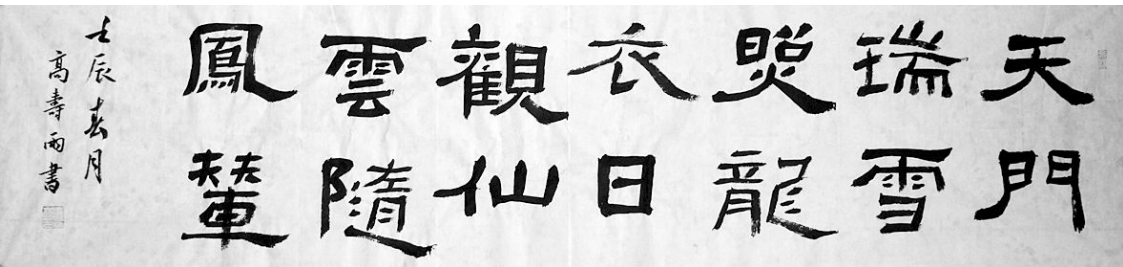 天門
瑞雪
照龍
衣日
觀仙
雲隨
鳳輦
壬辰春月
高壽雨書